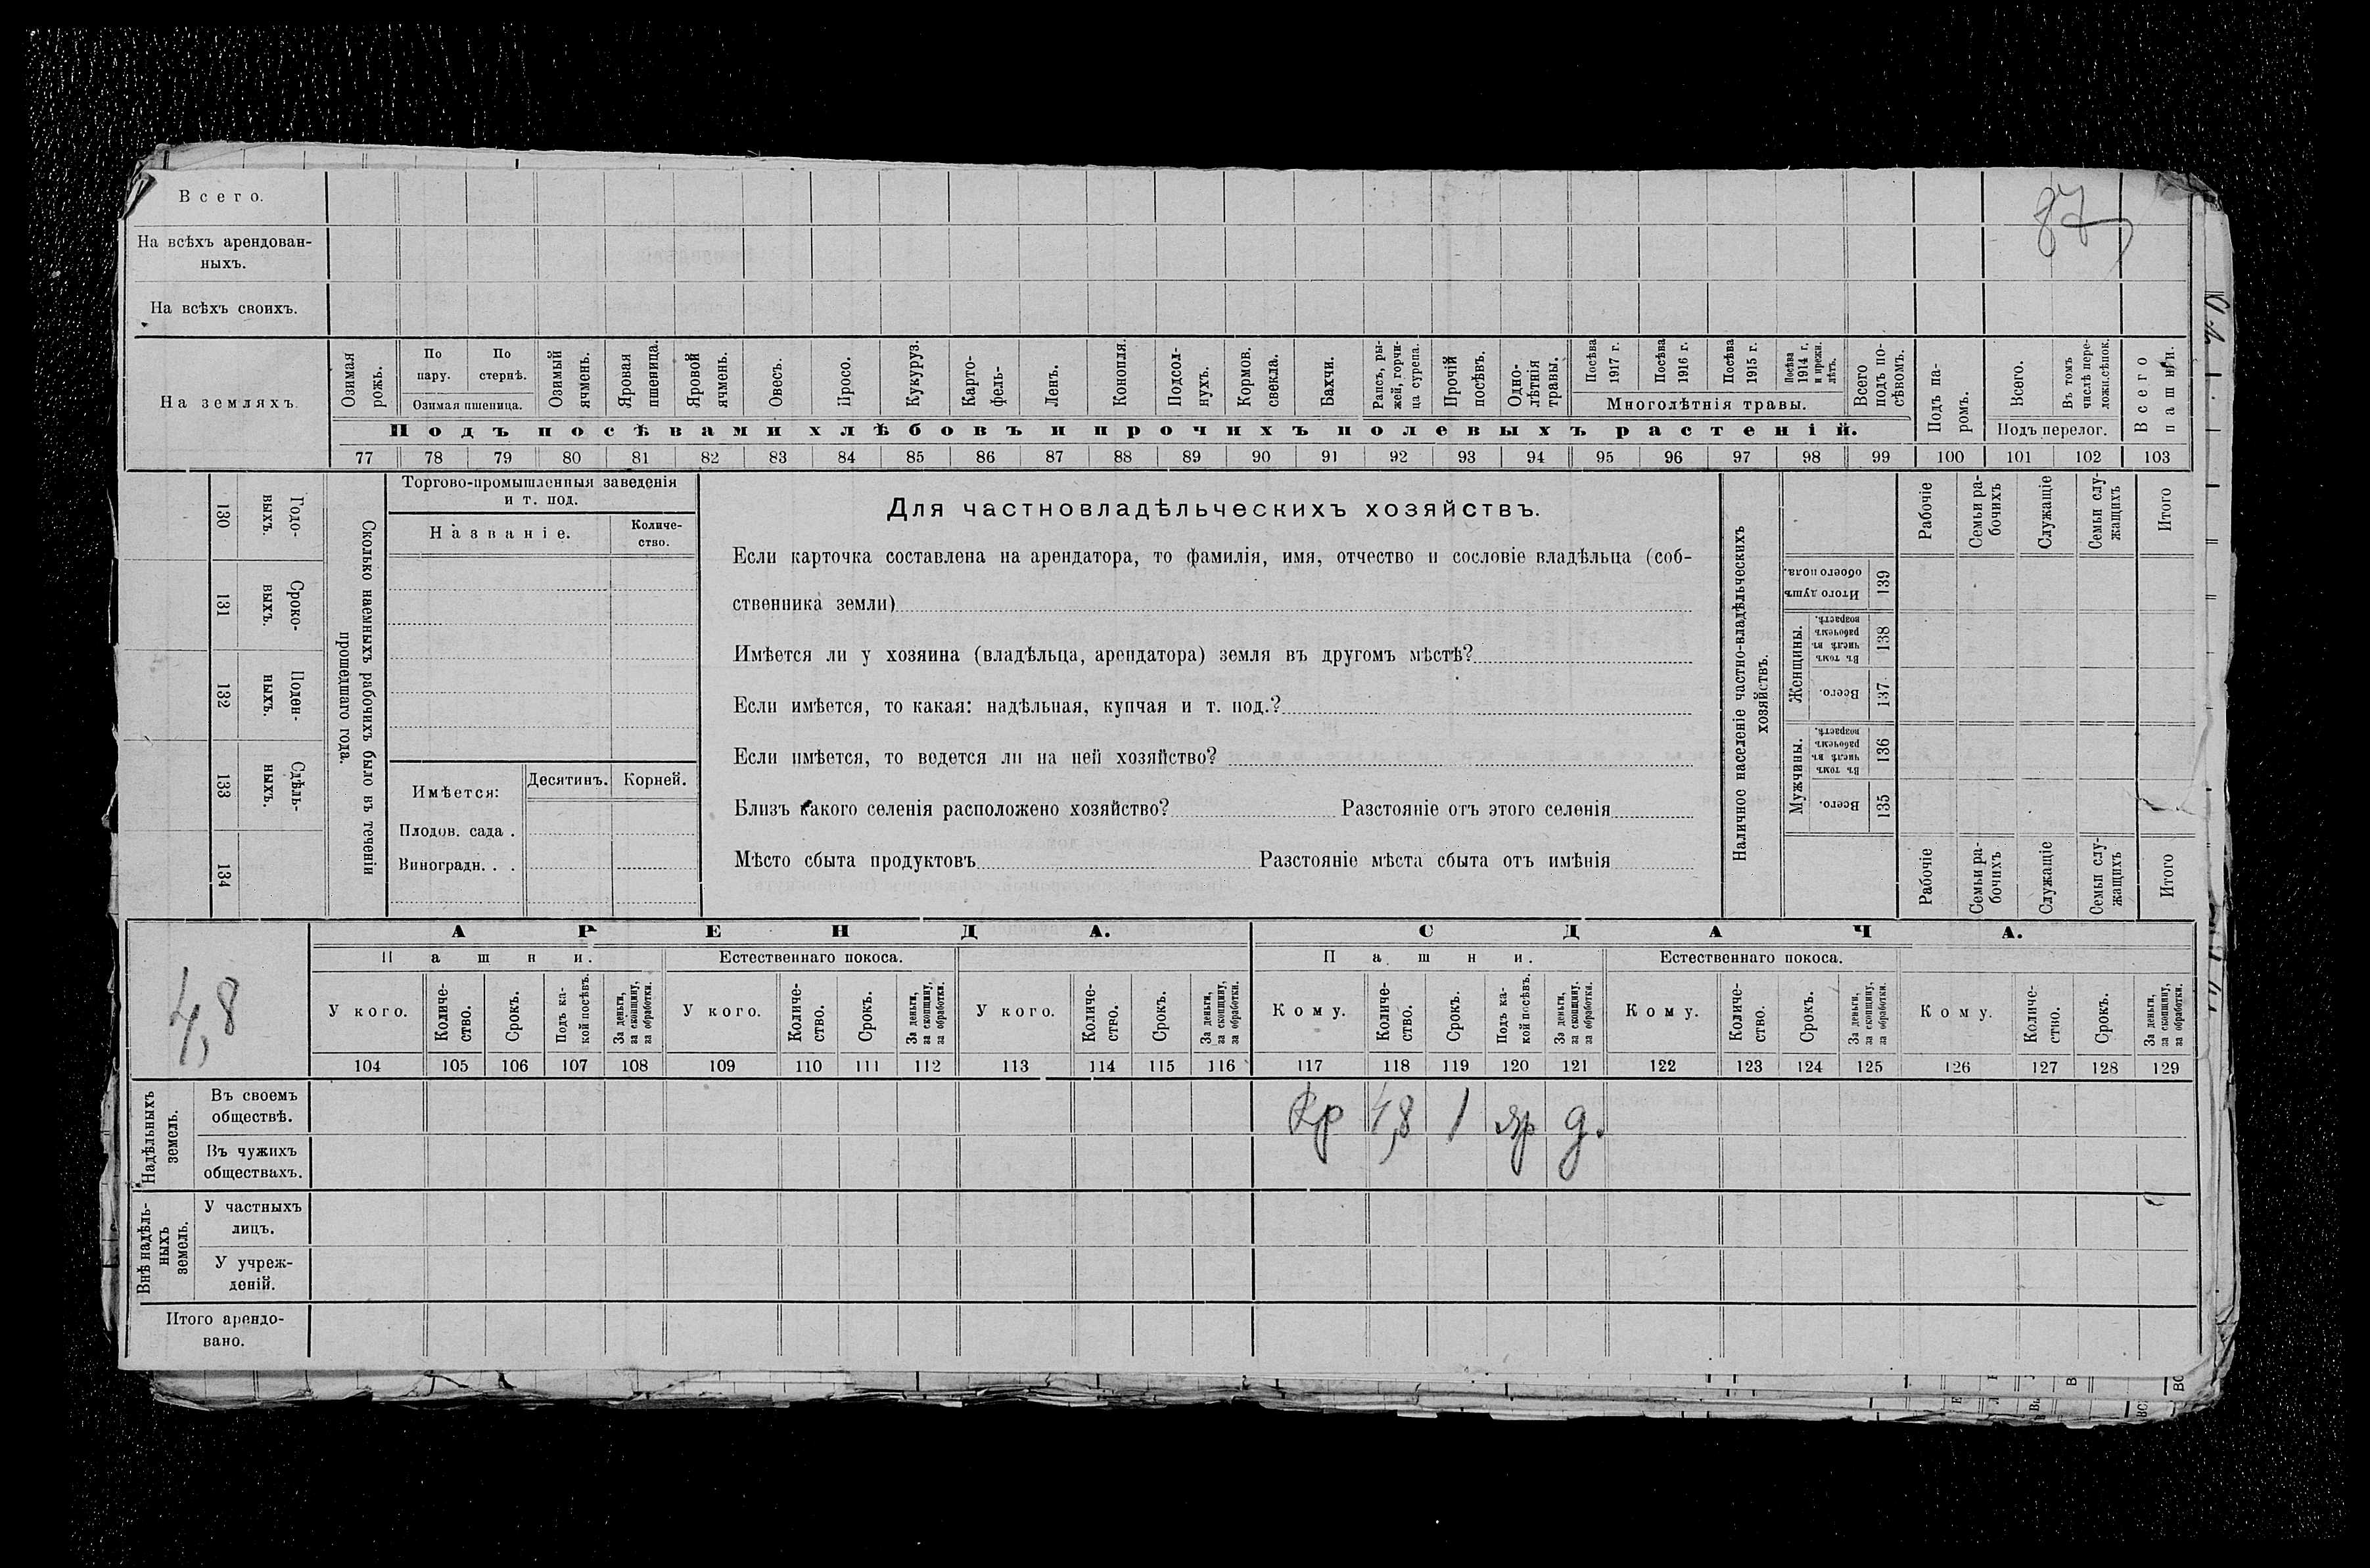 Всего.
87
На всѣхъ арендован-
ныхъ.
На всѣхъ своихъ.
На земляхъ.
Озимая рожь.
По пару.
По стернѣ.
Озимая пшеница.
Озимый ячмень.
Яровая пшеница.
Яровой ячмень.
Овесъ.
Просо.
Кукуруз.
Карто-
фель-
Ленъ.
Конопля.
Подсол-
нухъ.
Кормов.
свекла.
Бахчи.
Рапсъ, ры-
жей, горчи-
ца сурепа.
Прочій
посѣвъ.
Одно-
лѣтнія
травы.
Посѣва
1917 г.
Посѣва
1916 г.
Посѣва
1915 г.
Посѣва
1914 г.
и прежн.
лѣтъ.
Многолѣтнія травы.
Всего
подъ по-
сѣвомъ.
Подъ па-
ромъ.
Всего.
Въ томъ
числѣ пере-
ложн.сѣнок.
Подъ перелог.
Всего
пашни.
Подъ посѣвами хлѣбовъ и прочихъ полевыхъ растеній.
77 78 79 80 81 82 83 84 85 86 87 88 89 90 91 92 93 94 95 96 97 98 99 100 101 102 103
130
Годо-
выхъ.
131
Сроко-
выхъ.
132
Поден-
ныхъ.
133
Сдѣль-
ныхъ.
134
Сколько наемныхъ рабочихъ было въ теченіи
прошедшаго года.
Торгово-промышленныя заведенія
и т. под.
Названіе.
Количе-
ство.
Имѣется:
Десятинъ.
Корней.
Плодов. сада .
Виноградн. . .
Для частновладѣльческихъ хозяйствъ.
Если карточка составлена на арендатора, то фамилія, имя, отчество и сословіе владѣльца (соб-
ственника земли)
Имѣется ли у хозяина (владѣльца, арендатора) земля въ другомъ мѣстѣ?
Если имѣется, то какая: надѣльная, купчая и т. под.?
Если имѣется, то ведется ли на ней хозяйство?
Близъ какого селенія расположено хозяйство? Разстояніе отъ этого селенія
Мѣсто сбыта продуктовъ Разстояніе мѣста сбыта отъ имѣнія
Наличное населеніе частно-владѣльческихъ
хозяйствъ.
Рабочіе
Семьи ра-
бочихъ
Служащіе
Семьи слу-
жащихъ
Итого
Итого душъ
обоего пола.
139
Женщины.
Въ томъ
числѣ въ
рабочемъ
возрастѣ.
138
Всего.
137
Мужчины.
Въ томъ
числѣ въ
рабочемъ
возрастѣ.
136
Всего.
135
Рабочіе
Семьи ра-
бочихъ
Служащіе
Семьи слу-
жащихъ
Итого
4,8
АРЕНДА.
СДАЧА.
Пашни.
Естественнаго покоса.
Пашни.
Естественнаго покоса.
У кого.
Количе-
ство.
Срокъ.
Подъ ка-
кой посѣвъ.
За деньги,
за скопщину,
за обработки.
У кого.
Количе-
ство.
Срокъ.
За деньги,
за скопщину,
за обработки.
У кого.
Количе-
ство.
Срокъ.
За деньги,
за скопщину,
за обработки.
Кому.
Количе-
ство.
Срокъ.
Подъ ка-
кой посѣвъ.
За деньги,
за скопщину,
за обработки.
Кому.
Количе-
ство.
Срокъ.
За деньги,
за скопщину,
за обработки.
Кому.
Количе-
ство.
Срокъ.
За деньги,
за скопщину,
за обработки.
104 105 106 107 108 109 110 111 112 113 114 115 116 117 118 119 120 121 122 123 124 125 126 127 128 129
Надѣльныхъ
земель.
Въ своемъ
обществѣ.
Кр 4,8 1 яр д.
Въ чужихъ
обществахъ.
Внѣ надѣль-
ныхъ
земель.
У частныхъ
лицъ.
У учреж-
деній.
Итого арендо-
вано.